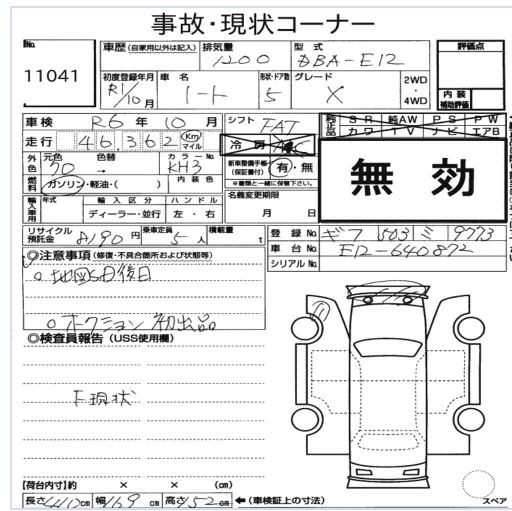 事故・現状コーナー
No.
11041
車歴 (自家用以外は記入)
排気量
1200
型式
DBA-E12
評価点
初度登録年月
R1/10月
車名
ノート
形状・ドア数
5
グレード
X
2WD
・
4WD
内装
補助評価
車検 R6年10月
シフト
FAT
純正品
SR 純AW PS PW
カワ TV ナビ エアB
走行 46,362 Km マイル
冷房 AAC
無効
外色 元色 色替 カラーNo.
70 → KH3
新車整備手帳
(保証書付)
有・無
※書類と一緒に保管下さい。
燃料 ガソリン・軽油・( )
内装色
名義変更期限
月 日
輸入車用 年式 輸入区分 ハンドル
ディーラー・並行 左・右
リサイクル預託金 8190円
乗車定員 5人
積載量 t
登録No. ギフ 503 ミ 9773
車台No. E12-640872
シリアルNo.
◎注意事項 (修復・不具合箇所および状態等)
○ 地図SD後日
○ オークション初出品
◎検査員報告 (USS使用欄)
F現状
【荷台内寸】約 × × (cm)
長さ 410cm 幅 169cm 高さ 152cm ←(車検証上の寸法)
スペア